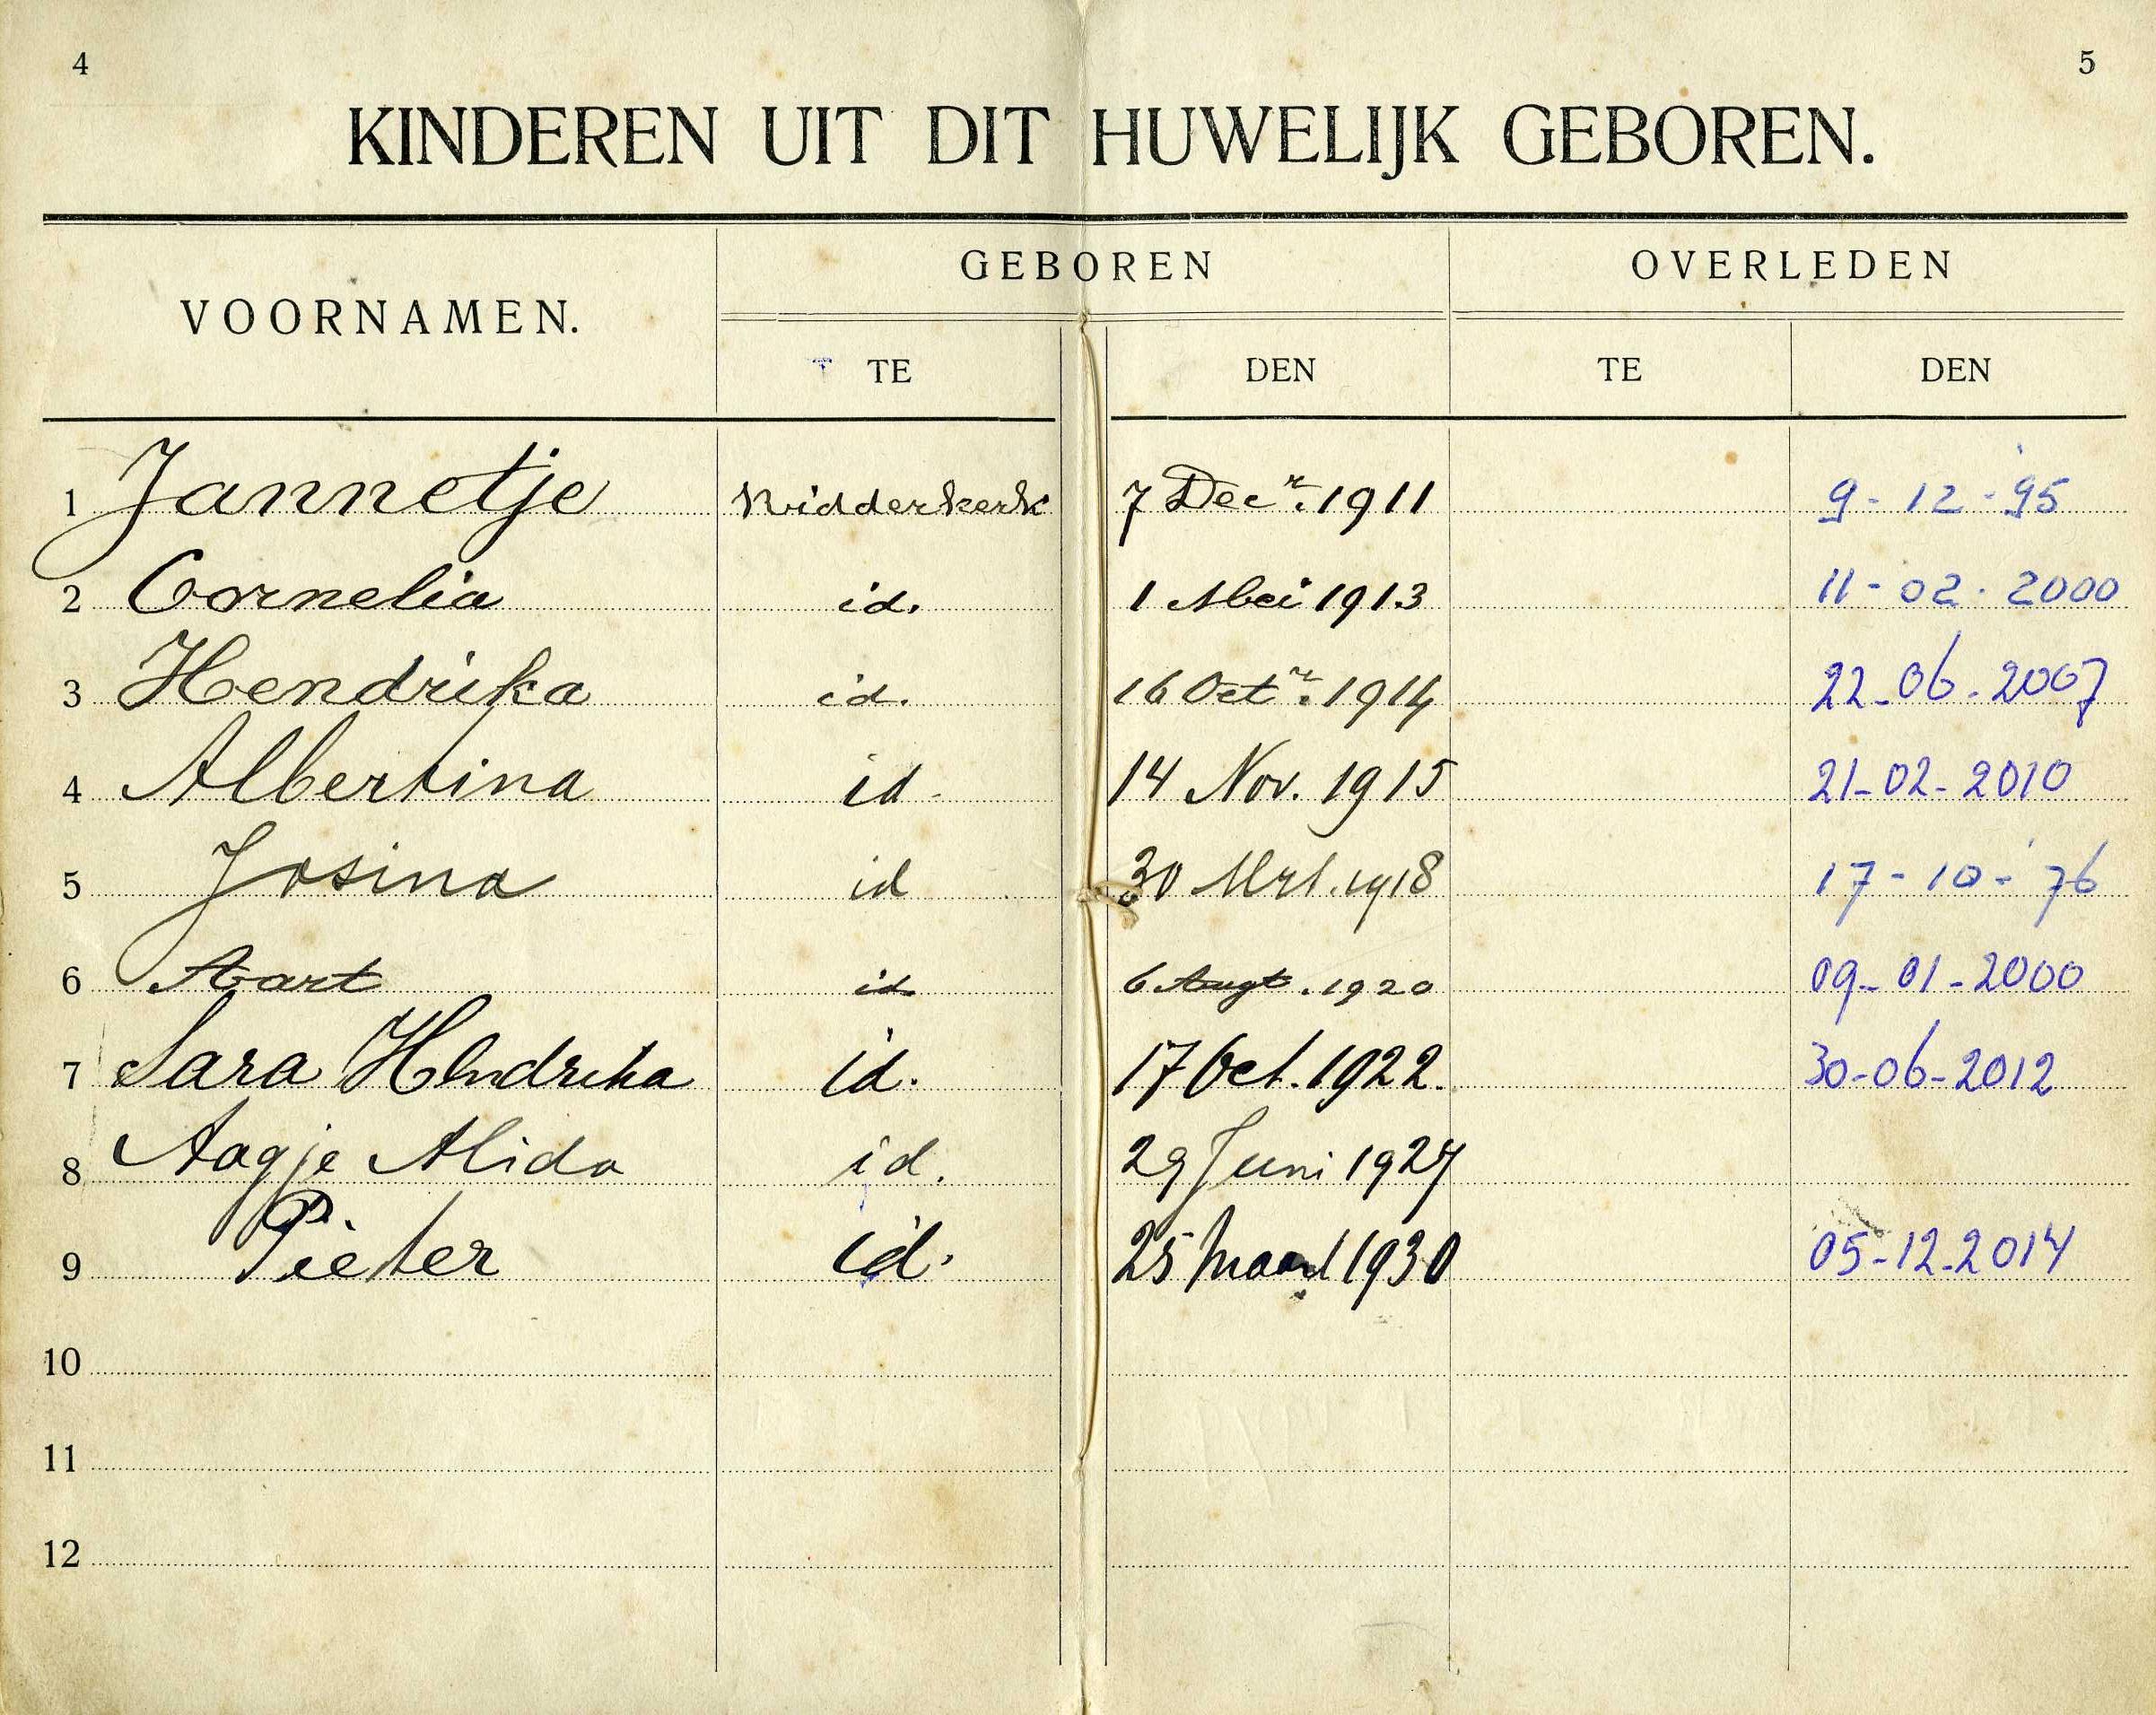 4 5
KINDEREN UIT DIT HUWELIJK GEBOREN.
VOORNAMEN. GEBOREN OVERLEDEN
TE DEN TE DEN
1 Jannetje Ridderkerk 7 Decr. 1911 9-12-'95
2 Cornelia id. 1 Mei 1913 11-02-2000
3 Hendrika id. 16 Octr. 1914 22-06-2007
4 Albertina id. 14 Nov. 1915 21-02-2010
5 Josina id 30 Mrt. 1918 17-10-'76
6 Aart id 6 Augt. 1920 09-01-2000
7 Sara Hendrika id. 17 Oct. 1922. 30-06-2012
8 Aagje Alida id. 29 Juni 1927
9 Pieter id. 25 Maart 1930 05-12-2014
10
11
12